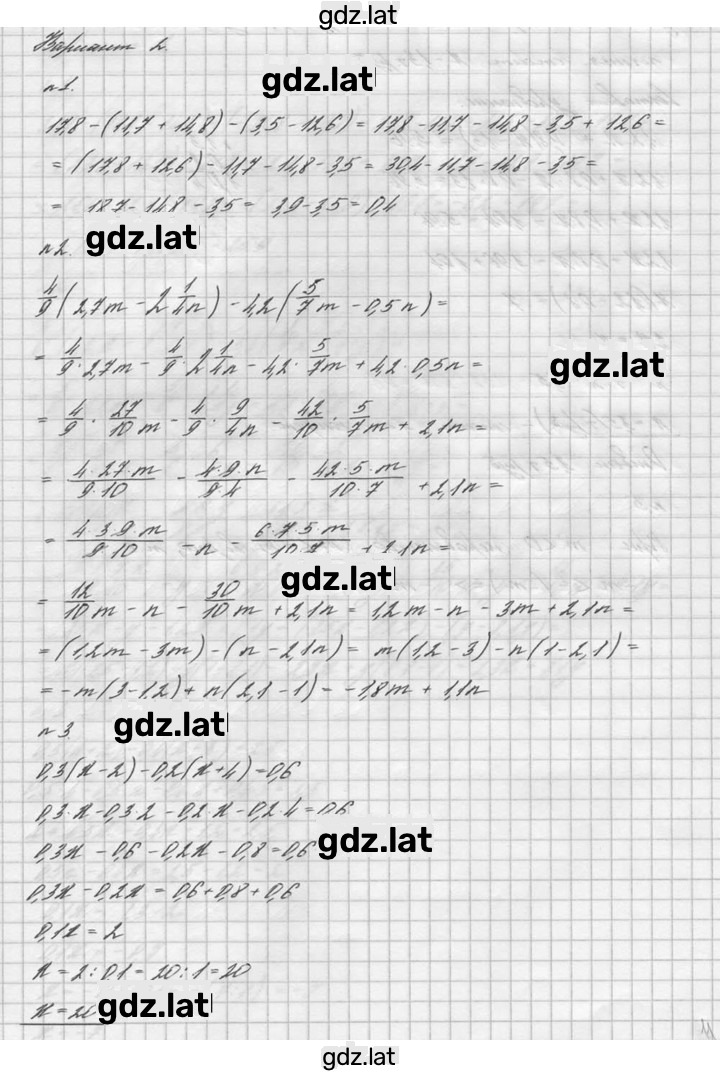 gdz.lat
Вариант 2.
gdz.lat
№1.
17,8-(11,7+14,8)-(3,5-12,6)=17,8-11,7-14,8-3,5+12,6=
=(17,8+12,6)-11,7-14,8-3,5=30,4-11,7-14,8-3,5=
=18,7-14,8-3,5=3,9-3,5=0,4
№2. gdz.lat
4/9(2,7m-2 1/4n)-4,2(5/7m-0,5n)=
=4/9·2,7m-4/9·2 1/4n-4,2·5/7m+4,2·0,5n=
gdz.lat
=4/9·27/10m-4/9·9/4n-42/10·5/7m+2,1n=
=4·27·m/9·10-4·9·n/9·4-42·5·m/10·7+2,1n=
=4·3·9·m/9·10-n-6·7·5·m/10·7+2,1n=
gdz.lat
=12/10m-n-30/10m+2,1n=1,2m-n-3m+2,1n=
=(1,2m-3m)-(n-2,1n)=m(1,2-3)-n(1-2,1)=
=-m(3-1,2)+n(2,1-1)=-1,8m+1,1n
№3 gdz.lat
0,3(x-2)-0,2(x+4)=0,6
0,3·x-0,3·2-0,2·x-0,2·4=0,6
0,3x-0,6-0,2x-0,8=0,6 gdz.lat
0,3x-0,2x=0,6+0,8+0,6
0,1x=2
x=2:0,1=20:1=20
x=20 gdz.lat
gdz.lat